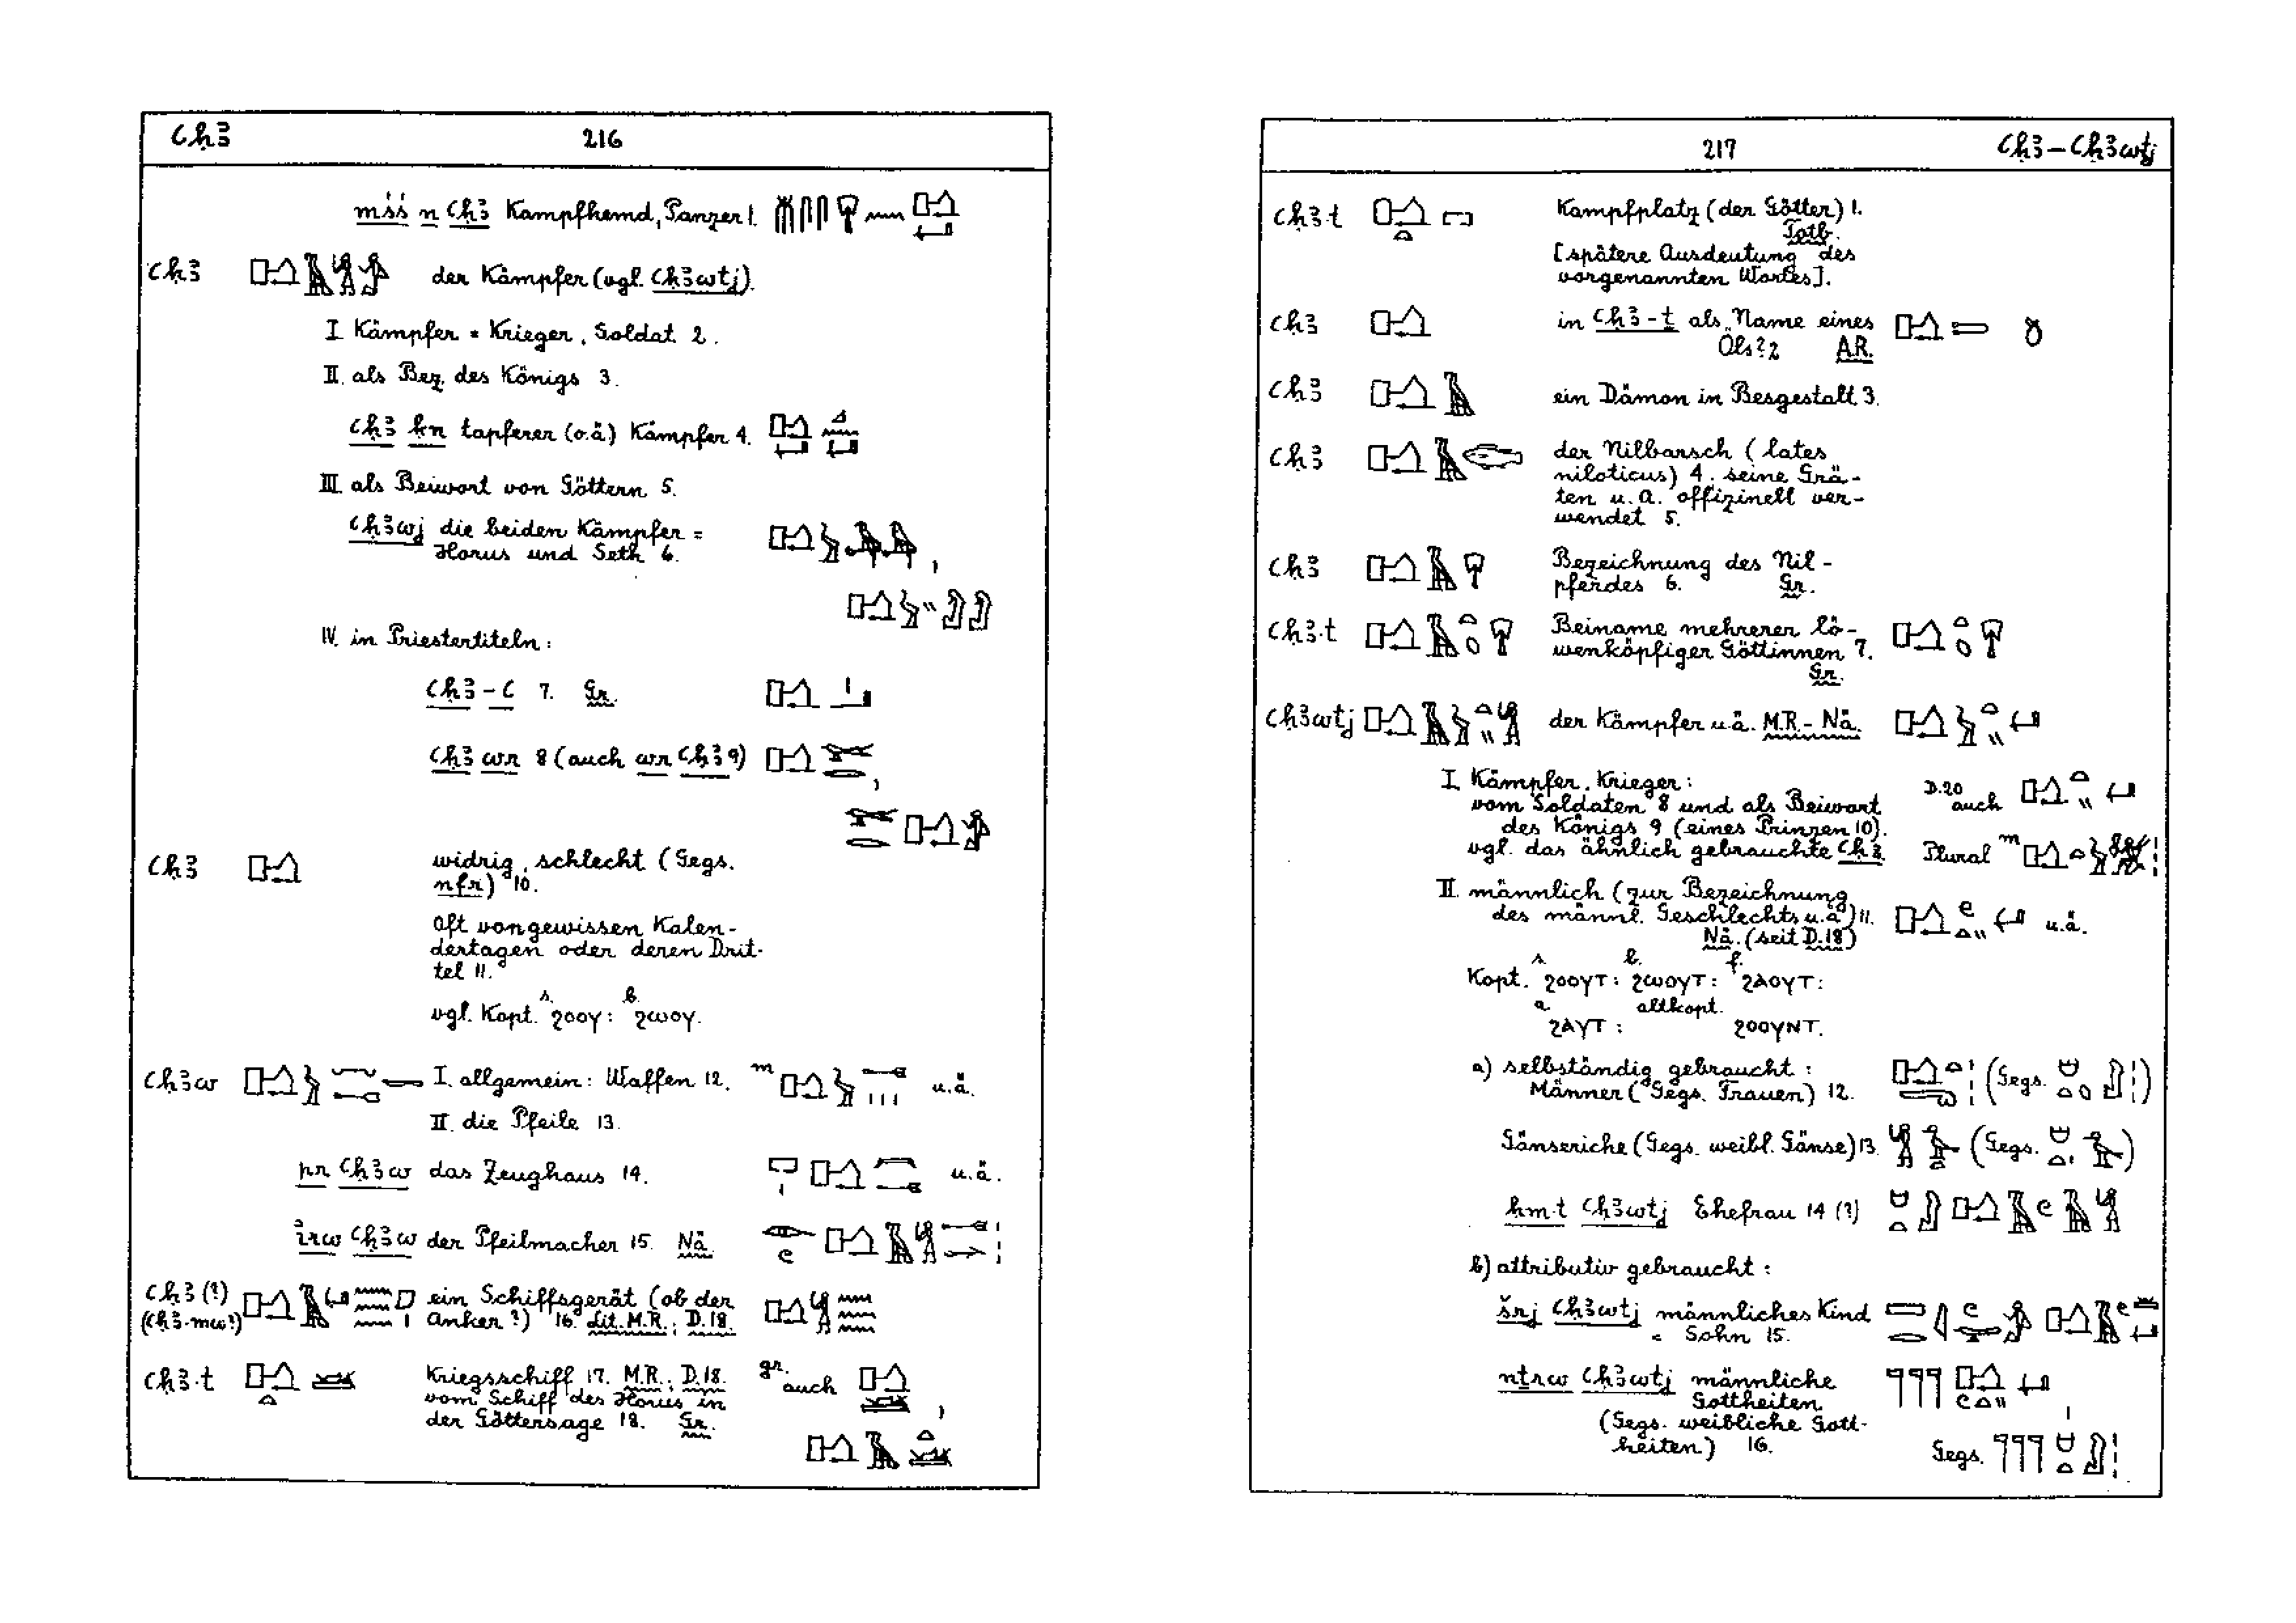 ꜥḥꜣ 216
mśś n ꜥḥꜣ Kampfhemd, Panzer 1.
ꜥḥꜣ der Kämpfer (vgl. ꜥḥꜣwtj).
I. Kämpfer = Krieger, Soldat 2.
II. als Bez. des Königs 3.
ꜥḥꜣ ḳn tapferer (o.ä) Kämpfer 4.
III. als Beiwort von Göttern 5.
ꜥḥꜣwj die beiden Kämpfer =
Horus und Seth 6.
IV. in Priestertiteln:
ꜥḥꜣ-ꜥ 7. Gr.
ꜥḥꜣ wr 8 (auch wr ꜥḥꜣ 9)
ꜥḥꜣ widrig, schlecht (Gegs.
nfr) 10.
Oft von gewissen Kalen-
dertagen oder deren Drit-
tel 11.
s. b.
vgl. Kopt. ϩοογ: ϩωογ.
ꜥḥꜣw I. allgemein: Waffen 12. m u.ä.
II. die Pfeile 13.
pr ꜥḥꜣw das Zeughaus 14. u.ä.
irw ꜥḥꜣw der Pfeilmacher 15. Nä.
ꜥḥꜣ (?) ein Schiffsgerät (ob der
(ꜥḥꜣ-mw?) Anker?) 16. Lit. M.R.; D.18.
ꜥḥꜣ·t Kriegsschiff 17. M.R.; D.18. gr. auch
vom Schiff des Horus in
der Göttersage 18. Gr.
217 ꜥḥꜣ – ꜥḥꜣwtj
ꜥḥꜣ·t Kampfplatz (der Götter) 1.
Totb.
[spätere Ausdeutung des
vorgenannten Wortes].
ꜥḥꜣ in ꜥḥꜣ-ṯ als Name eines
Öls? 2 A.R.
ꜥḥꜣ ein Dämon in Besgestalt 3.
ꜥḥꜣ der Nilbarsch (lates
niloticus) 4. seine Grä-
ten u.a. offizinell ver-
wendet 5.
ꜥḥꜣ Bezeichnung des Nil-
pferdes 6. Gr.
ꜥḥꜣ·t Beiname mehrerer lö-
wenköpfiger Göttinnen 7.
Gr.
ꜥḥꜣwtj der Kämpfer u.ä. M.R.-Nä.
I. Kämpfer, Krieger: D.20
vom Soldaten 8 und als Beiwort auch
des Königs 9 (eines Prinzen 10).
vgl. das ähnlich gebrauchte ꜥḥꜣ. Plural m
II. männlich (zur Bezeichnung
des männl. Geschlechts u.ä) 11. u.ä.
Nä. (seit D.18)
s. b. f.
Kopt. ϩοογτ: ϩωογτ: ϩαογτ:
a. altkopt.
ϩαγτ: ϩοογντ.
a) selbständig gebraucht:
Männer (Gegs. Frauen) 12. (Gegs. )
Gänseriche (Gegs. weibl. Gänse) 13. (Gegs. )
ḥm·t ꜥḥꜣwtj Ehefrau 14 (?)
b) attributiv gebraucht:
šrj ꜥḥꜣwtj männliches Kind
= Sohn 15.
nṯrw ꜥḥꜣwtj männliche
Gottheiten
(Gegs. weibliche Gott-
heiten) 16. Gegs.